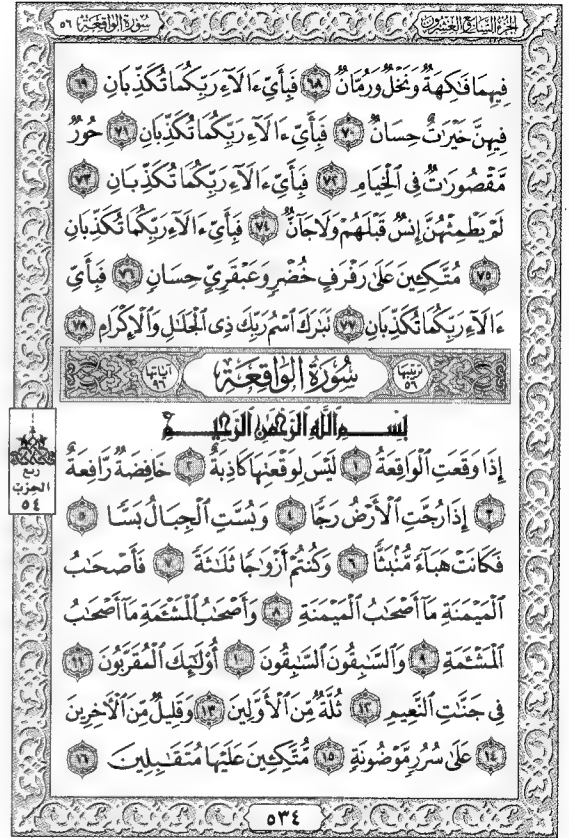 سُورَةُ الوَاقِعَةِ ٥٦
الجُزْءُ السَّابِعُ وَالعِشْرُونَ
فِيهِمَا فَٰكِهَةٌ وَنَخْلٌ وَرُمَّانٌ ٦٨ فَبِأَيِّ ءَالَآءِ رَبِّكُمَا تُكَذِّبَانِ ٦٩
فِيهِنَّ خَيْرَٰتٌ حِسَانٌ ٧٠ فَبِأَيِّ ءَالَآءِ رَبِّكُمَا تُكَذِّبَانِ ٧١ حُورٌ
مَّقْصُورَٰتٌ فِي ٱلْخِيَامِ ٧٢ فَبِأَيِّ ءَالَآءِ رَبِّكُمَا تُكَذِّبَانِ ٧٣
لَمْ يَطْمِثْهُنَّ إِنسٌ قَبْلَهُمْ وَلَا جَآنٌّ ٧٤ فَبِأَيِّ ءَالَآءِ رَبِّكُمَا تُكَذِّبَانِ
٧٥ مُتَّكِـِٔينَ عَلَىٰ رَفْرَفٍ خُضْرٍ وَعَبْقَرِيٍّ حِسَانٍ ٧٦ فَبِأَيِّ
ءَالَآءِ رَبِّكُمَا تُكَذِّبَانِ ٧٧ تَبَٰرَكَ ٱسْمُ رَبِّكَ ذِي ٱلْجَلَٰلِ وَٱلْإِكْرَامِ ٧٨
ترتيبها ٥٦ سُورَةُ الوَاقِعَةِ آياتها ٩٦
بِسْمِ ٱللَّهِ ٱلرَّحْمَٰنِ ٱلرَّحِيمِ
إِذَا وَقَعَتِ ٱلْوَاقِعَةُ ١ لَيْسَ لِوَقْعَتِهَا كَاذِبَةٌ ٢ خَافِضَةٌ رَّافِعَةٌ
٣ إِذَا رُجَّتِ ٱلْأَرْضُ رَجًّا ٤ وَبُسَّتِ ٱلْجِبَالُ بَسًّا ٥
فَكَانَتْ هَبَآءً مُّنۢبَثًّا ٦ وَكُنتُمْ أَزْوَٰجًا ثَلَٰثَةً ٧ فَأَصْحَٰبُ
ٱلْمَيْمَنَةِ مَآ أَصْحَٰبُ ٱلْمَيْمَنَةِ ٨ وَأَصْحَٰبُ ٱلْمَشْـَٔمَةِ مَآ أَصْحَٰبُ
ٱلْمَشْـَٔمَةِ ٩ وَٱلسَّٰبِقُونَ ٱلسَّٰبِقُونَ ١٠ أُو۟لَٰٓئِكَ ٱلْمُقَرَّبُونَ ١١
فِي جَنَّٰتِ ٱلنَّعِيمِ ١٢ ثُلَّةٌ مِّنَ ٱلْأَوَّلِينَ ١٣ وَقَلِيلٌ مِّنَ ٱلْأٓخِرِينَ
١٤ عَلَىٰ سُرُرٍ مَّوْضُونَةٍ ١٥ مُّتَّكِـِٔينَ عَلَيْهَا مُتَقَٰبِلِينَ ١٦
ربع
الحزب
٥٤
٥٣٤